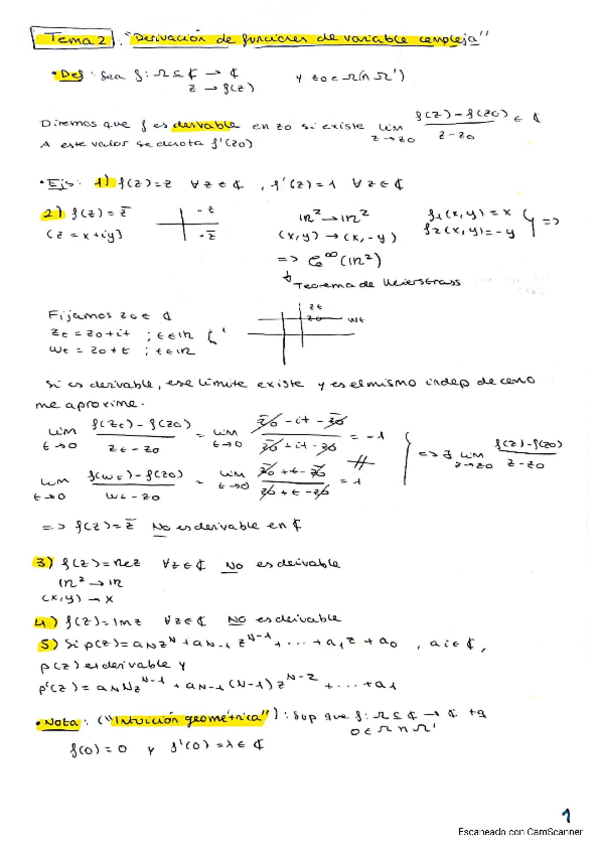 Tema 2. "Derivación de funciones de variable compleja"
• Def: Sea f: Ω ⊆ ℂ → ℂ y z0 ∈ Ω(∩ Ω')
z → f(z)
Diremos que f es derivable en z0 si existe lim z→z0 (f(z) - f(z0))/(z - z0) ∈ ℂ
A este valor se denota f'(z0)
• Ejs: 1) f(z) = z ∀z ∈ ℂ, f'(z) = 1 ∀z ∈ ℂ
2) f(z) = z̄ · z ℝ² → ℝ² f1(x,y) = x
(z = x + iy) · z̄ (x,y) → (x,-y) f2(x,y) = -y } =>
=> C^∞(ℝ²)
↓ Teorema de Weierstrass
Fijamos z0 ∈ ℂ
zt = z0 + it ; t ∈ ℝ zt
wt = z0 + t ; t ∈ ℝ z0 wt
Si es derivable, ese límite existe y es el mismo indep de como
me aproxime.
lim t→0 (f(zt) - f(z0))/(zt - z0) = lim t→0 (z̄0 - it - z̄0)/(z0 + it - z0) = -1
∦ => ∄ lim z→z0 (f(z) - f(z0))/(z - z0)
lim t→0 (f(wt) - f(z0))/(wt - z0) = lim t→0 (z̄0 + t - z̄0)/(z0 + t - z0) = 1
=> f(z) = z̄ No es derivable en ℂ
3) f(z) = Re z ∀z ∈ ℂ No es derivable
ℝ² → ℝ
(x,y) → x
4) f(z) = Im z ∀z ∈ ℂ NO es derivable
5) Si p(z) = aN z^N + aN-1 z^N-1 + ... + a1 z + a0, ai ∈ ℂ,
p(z) es derivable y
p'(z) = aN N z^N-1 + aN-1 (N-1) z^N-2 + ... + a1
• Nota: ("Intuición geométrica"): Sup que f: Ω ⊆ ℂ → ℂ tq
0 ∈ Ω ∩ Ω'
f(0) = 0 y f'(0) = λ ∈ ℂ
1
Escaneado con CamScanner